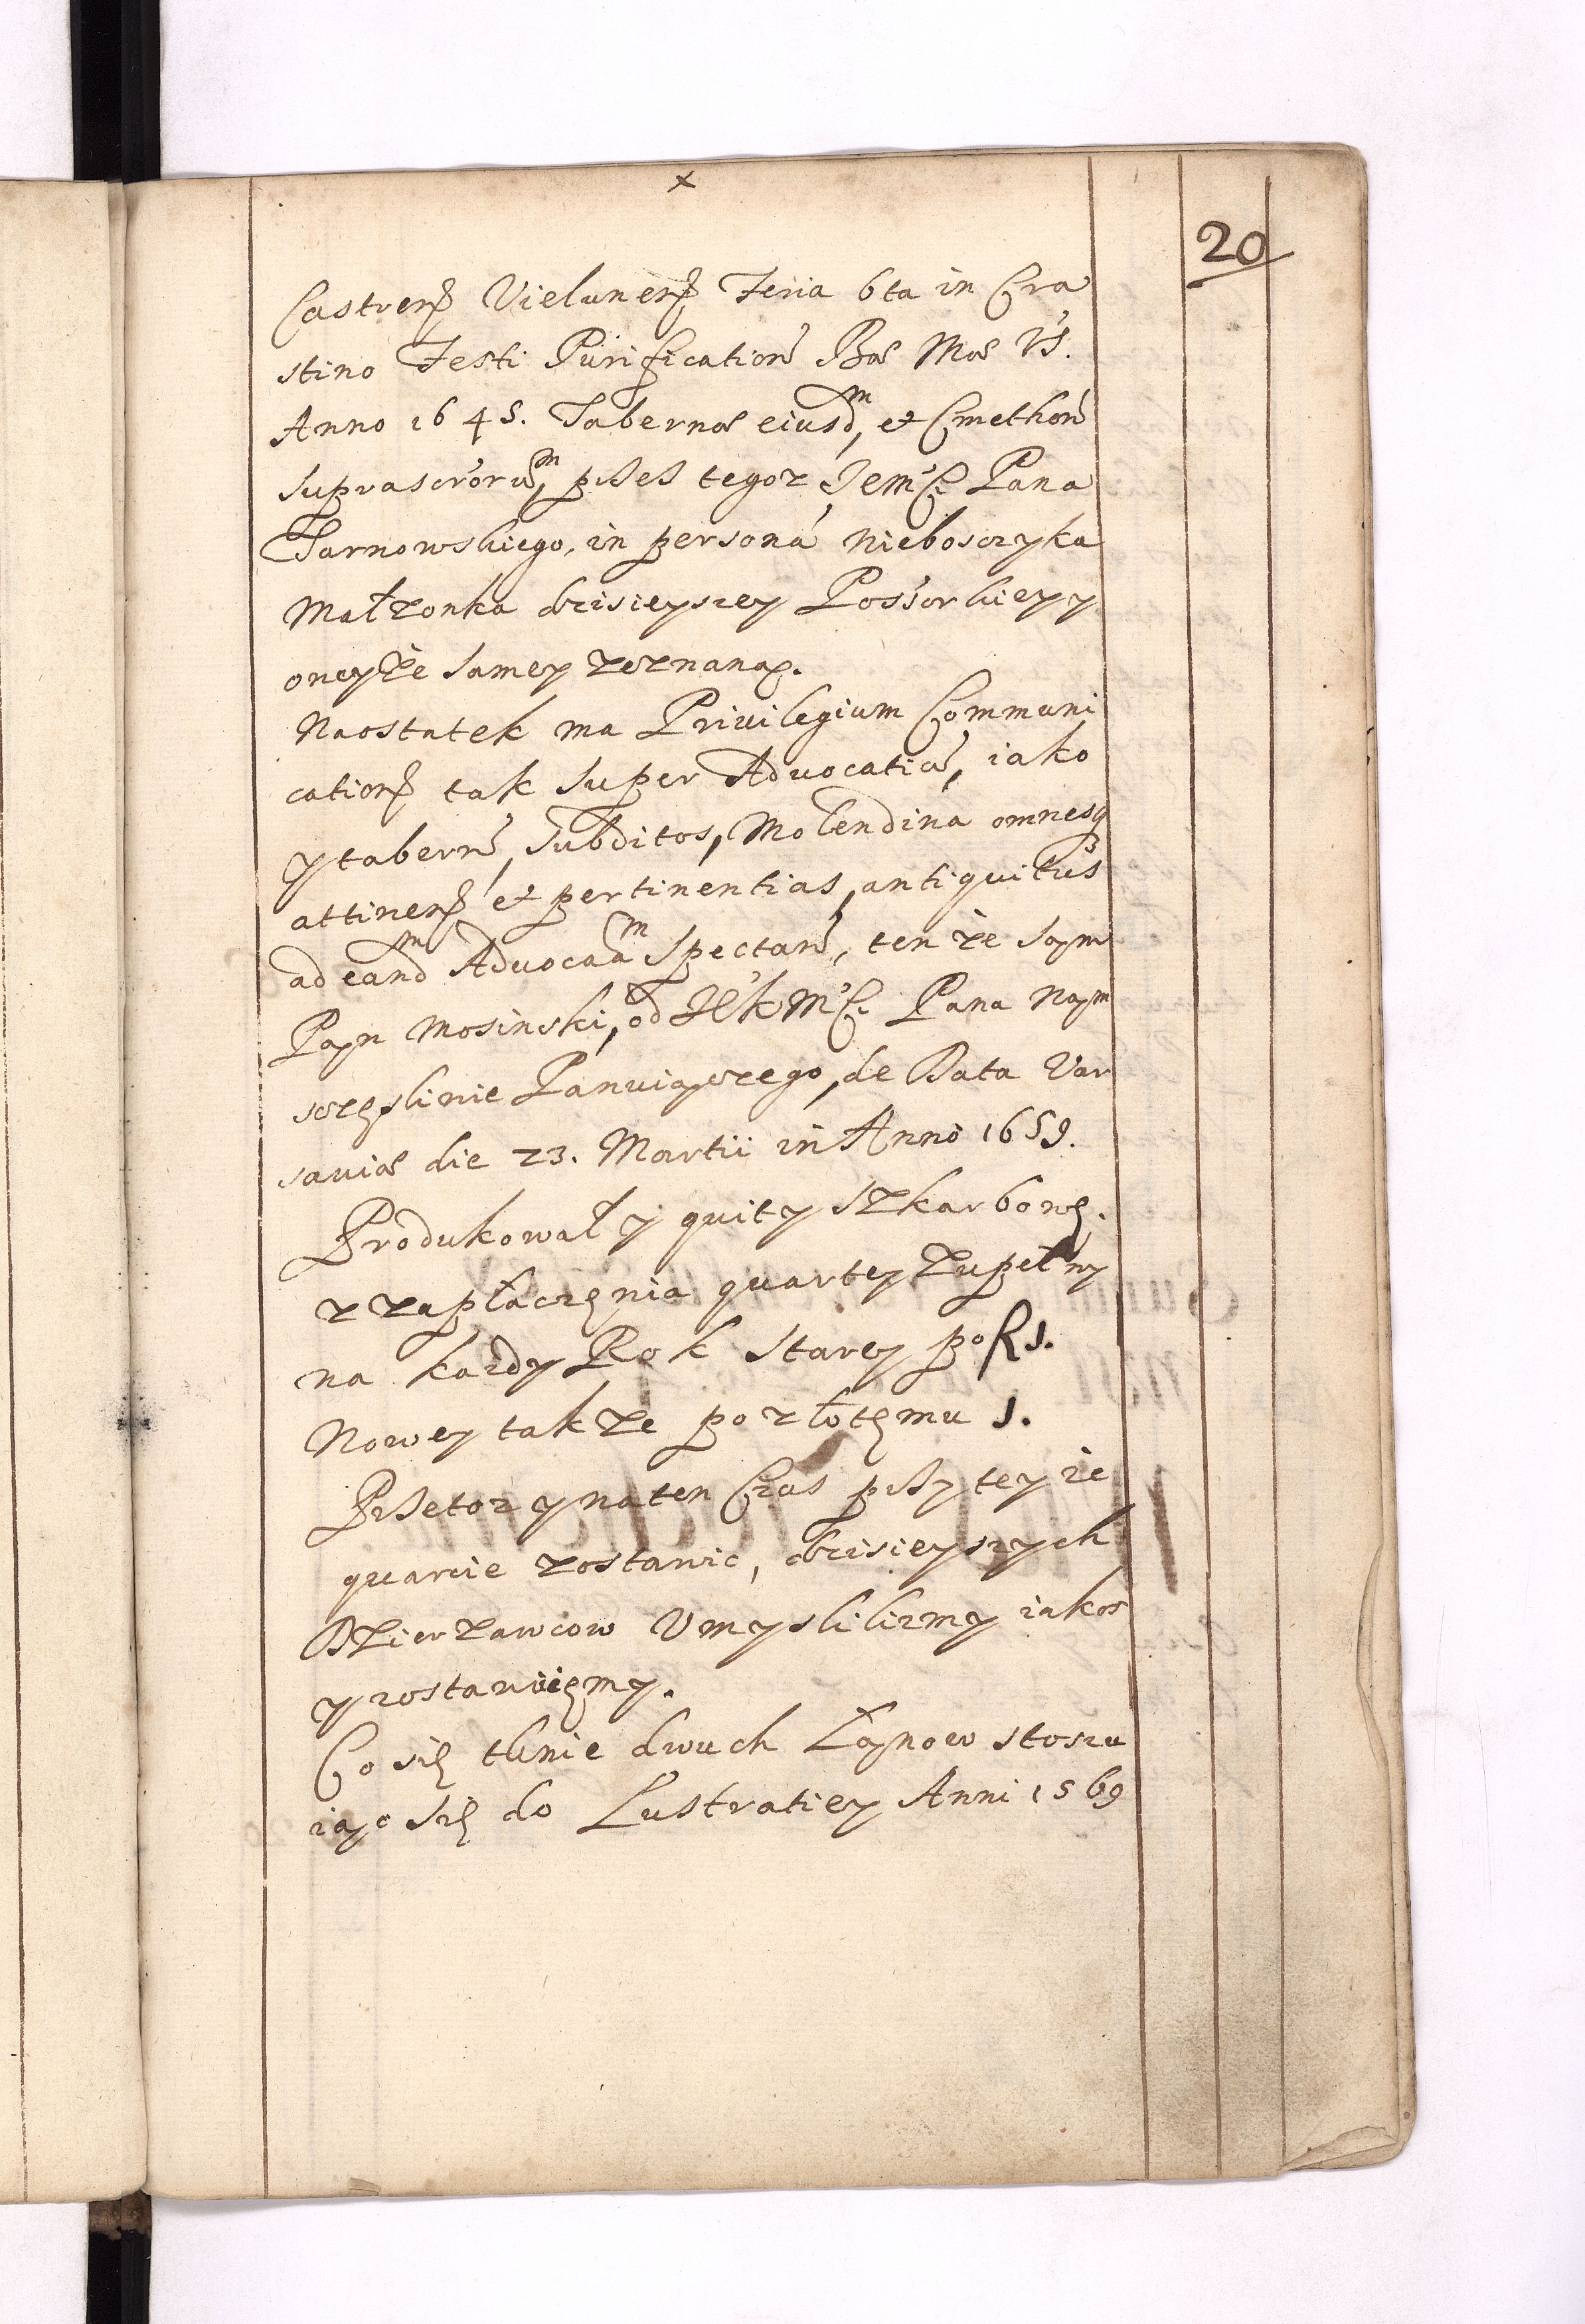 20
Castren Vielunen Feria 6ta in Cra
stino Festi Purification Bae Mae Vs.
Anno 1645. Tabernae eiusdm, et Cmethon
suprascrorum, przes tegoz Jemci Pana
Tarnowskiego, in personá Nieboszczyka
Małzonka dzisieyszey Possorkiey y
oneyże samey zeznaną.
Naostatek ma Privilegium Communi
cation tak super Advocatia, iako
y tabern, subditos, Molendina omnesq
attinen et pertinentias, antiquitus
ad eandm Advocaam spectan, ten że sąm
Pąn Mosinski, od JKMCi Pana Nąm
szczęsliwie Panuiącego, de Data Var
saviae die 23. Martii in Anno 1659.
Produkował y quity Szkarbowę.
z zapłaczęnia quarty zupełny
na kazdy Rok starey po f 1.
Nowey takze po złotęmu 1.
Przetoz y na ten Czas przy tey ze
quarcie zostawic, dzisieyszych
Dzierzawcow Umyslilizmy iakoz
y zostawuięmy.
Co się tknie dwuch Łąnow stosu
iąc się do Lustratiey Anni 1569